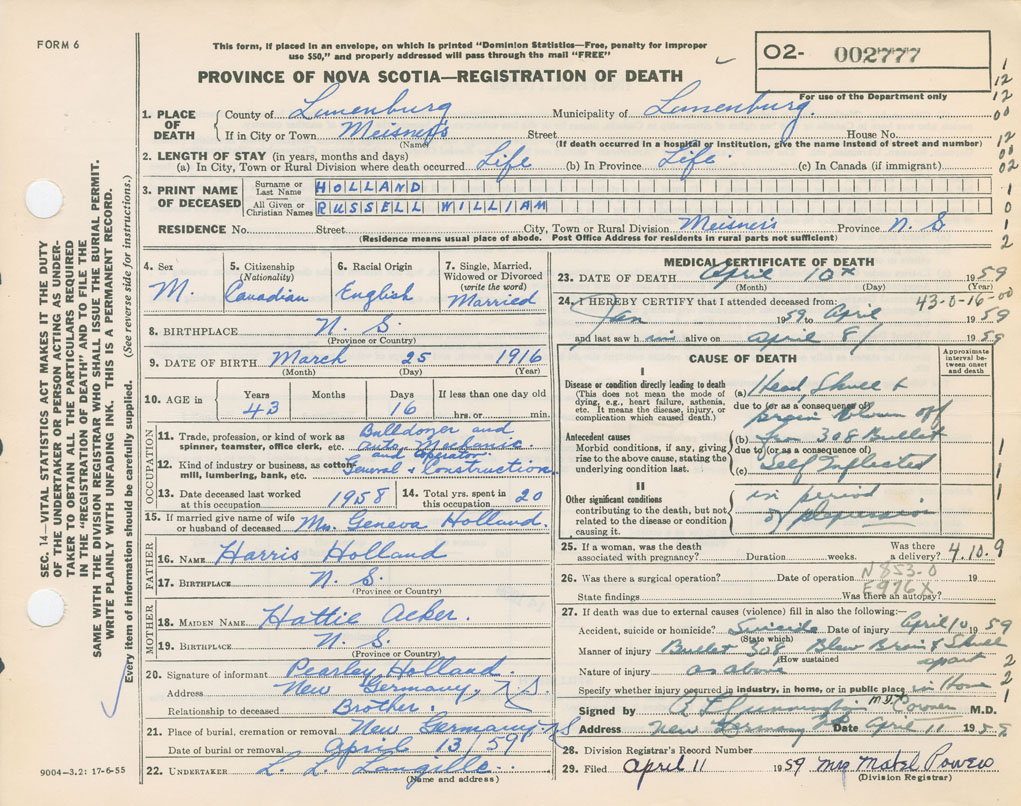 FORM 6
This form, if placed in an envelope, on which is printed "Dominion Statistics—Free, penalty for improper
use $50," and properly addressed will pass through the mail "FREE"
O2- 002777
For use of the Department only
PROVINCE OF NOVA SCOTIA—REGISTRATION OF DEATH
1. PLACE OF DEATH
County of Lunenburg Municipality of Lunenburg.
If in City or Town Meisner's Street House No.
(Name) (If death occurred in a hospital or institution, give the name instead of street and number)
2. LENGTH OF STAY (in years, months and days)
(a) In City, Town or Rural Division where death occurred Life (b) In Province Life. (c) In Canada (if immigrant)
3. PRINT NAME OF DECEASED
Surname or Last Name HOLLAND
All Given or Christian Names RUSSELL WILLIAM
RESIDENCE No. Street City, Town or Rural Division Meisner's Province N.S
(Residence means usual place of abode. Post Office Address for residents in rural parts not sufficient)
4. Sex M.
5. Citizenship (Nationality) Canadian
6. Racial Origin English
7. Single, Married, Widowed or Divorced (write the word) Married
8. BIRTHPLACE N.S.
(Province or Country)
9. DATE OF BIRTH March 25 1916
(Month) (Day) (Year)
10. AGE in Years 43 Months Days 16 If less than one day old hrs. or min.
OCCUPATION
11. Trade, profession, or kind of work as spinner, teamster, office clerk, etc. Bulldozer and Auto Mechanic. and operator
12. Kind of industry or business, as cotton mill, lumbering, bank, etc. General & Construction
13. Date deceased last worked at this occupation 1958
14. Total yrs. spent in this occupation 20
15. If married give name of wife or husband of deceased Mrs. Geneva Holland.
FATHER
16. NAME Harris Holland
17. BIRTHPLACE N.S.
(Province or Country)
MOTHER
18. MAIDEN NAME Hattie Acker.
19. BIRTHPLACE N.S.
(Province or Country)
20. Signature of informant Pearley Holland
Address New Germany, N.S.
Relationship to deceased Brother.
21. Place of burial, cremation or removal New Germany N.S
Date of burial or removal April 13/59
22. UNDERTAKER L. L. Langille.
(Name and address)
MEDICAL CERTIFICATE OF DEATH
23. DATE OF DEATH April 10th 1959
(Month) (Day)
24. I HEREBY CERTIFY that I attended deceased from: 43-0-16-00
Jan 1959 to April 1959
and last saw him alive on April 8/ 1959
CAUSE OF DEATH
Approximate interval between onset and death
I
Disease or condition directly leading to death
(This does not mean the mode of dying, e.g., heart failure, asthenia, etc. It means the disease, injury, or complication which caused death.)
(a) Head, Skull &
due to (or as a consequence of)
brain blown off
Antecedent causes
Morbid conditions, if any, giving rise to the above cause, stating the underlying condition last.
(b) from 308 Bullet
due to (or as a consequence of)
(c) Self Inflicted
II
Other significant conditions
contributing to the death, but not related to the disease or condition causing it.
in period
of depression
25. If a woman, was the death associated with pregnancy? Duration weeks. Was there a delivery? 4.10.9
26. Was there a surgical operation? Date of operation 19
N853-0
State findings Was there an autopsy?
E976X
27. If death was due to external causes (violence) fill in also the following:—
Accident, suicide or homicide? Suicide Date of injury April 10 1959
(State which)
Manner of injury Bullet 308 Blew Brain & Skull
(How sustained) apart
Nature of injury as above
Specify whether injury occurred in industry, in home, or in public place in Home
Signed by M.D. Coroner M.D.
Address New Germany Date April 11
28. Division Registrar's Record Number
29. Filed April 11 1959 Mrs Powers
(Division Registrar)
SEC. 14—VITAL STATISTICS ACT MAKES IT THE DUTY
OF THE UNDERTAKER OR PERSON ACTING AS UNDER-
TAKER TO OBTAIN ALL THE PARTICULARS REQUIRED
IN THE "REGISTRATION OF DEATH" AND TO FILE THE
SAME WITH THE DIVISION REGISTRAR WHO SHALL ISSUE THE BURIAL PERMIT.
WRITE PLAINLY WITH UNFADING INK. THIS IS A PERMANENT RECORD.
Every item of information should be carefully supplied. (See reverse side for instructions.)
9004—3.2: 17-6-55
1
12
12
00
12
00
02
1
0
1
2
1
1
1
2
2
1